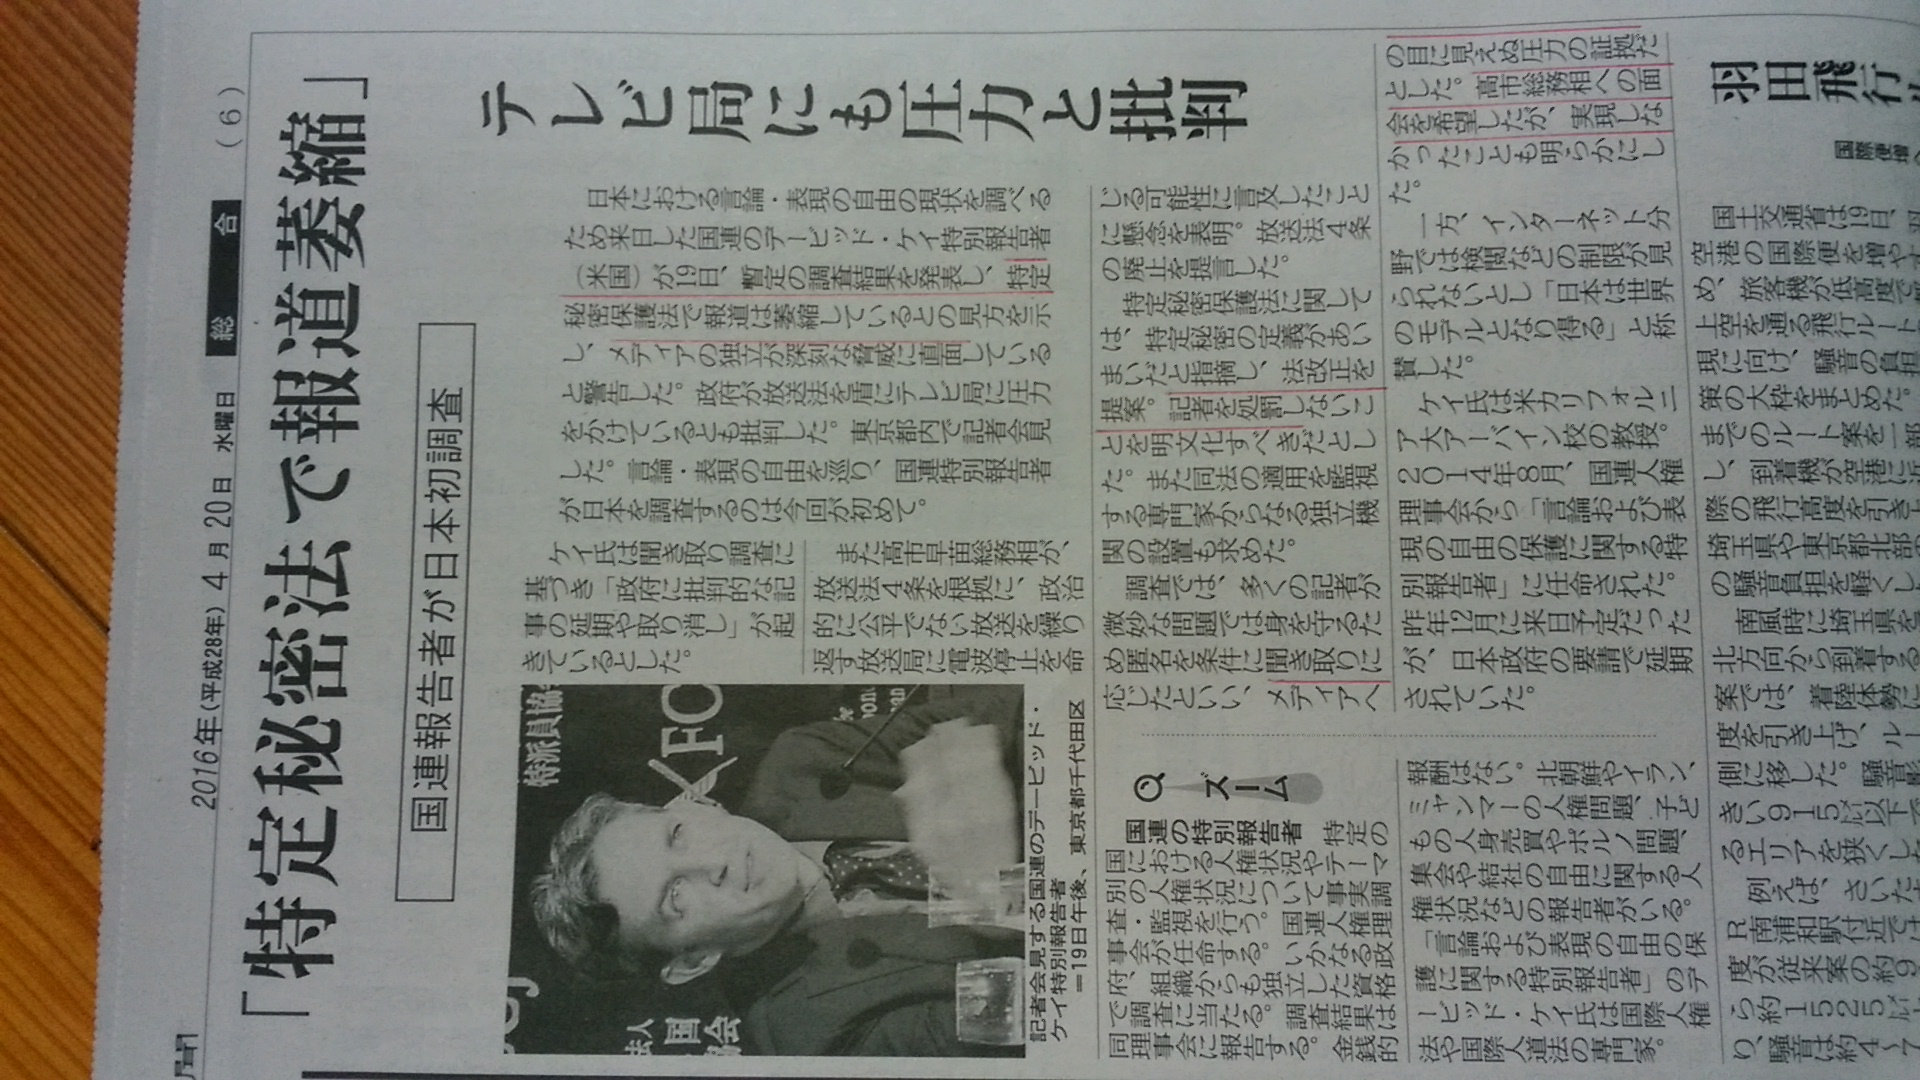 2016年(平成28年)4月20日 水曜日
総合
(6)
「特定秘密法で報道萎縮」
国連報告者が日本初調査
テレビ局にも圧力と批判
日本における言論・表現の自由の現状を調べる
ため来日した国連のデービッド・ケイ特別報告者
(米国)が19日、暫定の調査結果を発表し、特定
秘密保護法で報道は萎縮しているとの見方を示
し、メディアの独立が深刻な脅威に直面している
と警告した。政府が放送法を盾にテレビ局に圧力
をかけているとも批判した。東京都内で記者会見
した。言論・表現の自由を巡り、国連特別報告者
が日本を調査するのは今回が初めて。
ケイ氏は聞き取り調査に
基づき「政府に批判的な記
事の延期や取り消し」が起
きているとした。
また高市早苗総務相が、
放送法4条を根拠に、政治
的に公平でない放送を繰り
返す放送局に電波停止を命
じる可能性に言及したこと
に懸念を表明。放送法4条
の廃止を提言した。
特定秘密保護法に関して
は、特定秘密の定義があい
まいだと指摘し、法改正を
提案。記者を処罰しないこ
とを明文化すべきだとし
た。また同法の適用を監視
する専門家からなる独立機
関の設置も求めた。
調査では、多くの記者が
微妙な問題では身を守るた
め匿名を条件に聞き取りに
応じたといい、メディアへ
の目に見えぬ圧力の証拠だ
とした。高市総務相への面
会を希望したが、実現しな
かったことも明らかにし
た。
一方、インターネット分
野では検閲などの制限が見
られないとし「日本は世界
のモデルとなり得る」と称
賛した。
ケイ氏は米カリフォルニ
ア大アーバイン校の教授。
2014年8月、国連人権
理事会から「言論および表
現の自由の保護に関する特
別報告者」に任命された。
昨年12月に来日予定だった
が、日本政府の要請で延期
されていた。
特派員協
FC
記者会見する国連のデービッド・
ケイ特別報告者
=19日午後、東京都千代田区
ズーム
国連の特別報告者 特定の
国における人権状況やテーマ
別の人権状況について事実調
査・監視を行う。国連人権理
事会が任命する。いかなる政
府、組織からも独立した資格
で調査に当たる。調査結果は
同理事会に報告する。金銭的
報酬はない。北朝鮮やイラン、
ミャンマーの人権問題、子ど
もの人身売買やポルノ問題、
集会や結社の自由に関する人
権状況などの報告者がいる。
「言論および表現の自由の保
護に関する特別報告者」のデ
ービッド・ケイ氏は国際人権
法や国際人道法の専門家。
羽田飛行
国際便増
国土交通省は19日、羽
空港の国際便を増やす
め、旅客機が低高度で
上空を通る飛行ルート
現に向け、騒音の負担
策の大枠をまとめた。
までのルート案を一部
し、到着機が空港に近
際の飛行高度を引き上
埼玉県や東京都北部の
の騒音負担を軽くし
南風時に埼玉県を
北方向から到着する
案では、着陸体勢に
度を引き上げ、ルー
側に移した。騒音影
きい915㍍以下で
るエリアを狭くした
例えば、さいたま
R南浦和駅付近では
度が従来案の約9
ら約1525㍍
り、騒音は約4~7